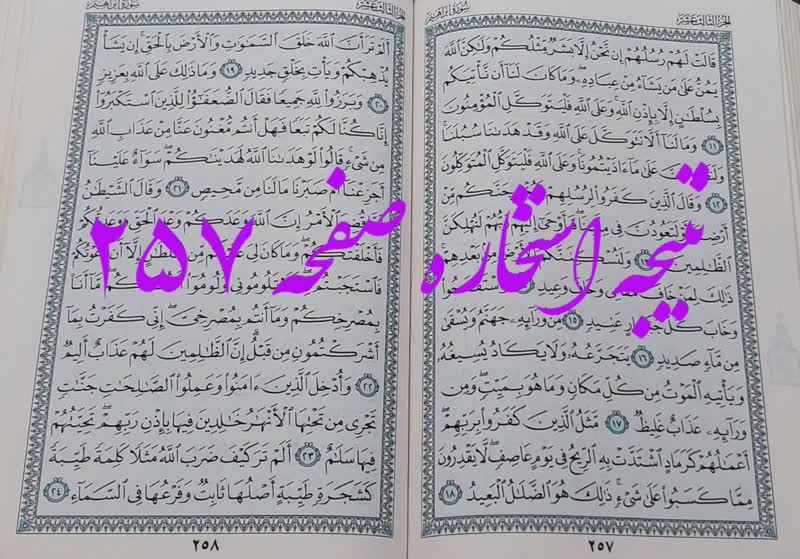 الجزء الثالث عشر
سورة إبراهيم
قَالَتْ لَهُمْ رُسُلُهُمْ إِن نَّحْنُ إِلَّا بَشَرٌ مِّثْلُكُمْ وَلَٰكِنَّ اللَّهَ
يَمُنُّ عَلَىٰ مَن يَشَاءُ مِنْ عِبَادِهِ ۖ وَمَا كَانَ لَنَا أَن نَّأْتِيَكُم
بِسُلْطَانٍ إِلَّا بِإِذْنِ اللَّهِ ۚ وَعَلَى اللَّهِ فَلْيَتَوَكَّلِ الْمُؤْمِنُونَ
١١ وَمَا لَنَا أَلَّا نَتَوَكَّلَ عَلَى اللَّهِ وَقَدْ هَدَانَا سُبُلَنَا ۚ
عَلَىٰ مَا ءَاذَيْتُمُونَا ۚ وَعَلَى اللَّهِ فَلْيَتَوَكَّلِ الْمُتَوَكِّلُونَ
١٢ وَقَالَ الَّذِينَ كَفَرُوا لِرُسُلِهِمْ مِّنْ
أَرْضِنَا لَتَعُودُنَّ فِي لَنُهْلِكَنَّ
الظَّالِمِينَ مِن بَعْدِهِمْ
ذَٰلِكَ لِمَنْ خَافَ وَعِيدِ
وَخَابَ كُلُّ عَنِيدٍ ١٥ مِّن وَرَائِهِ جَهَنَّمُ وَيُسْقَىٰ
مِن مَّاءٍ صَدِيدٍ ١٦ يَتَجَرَّعُهُ وَلَا يَكَادُ يُسِيغُهُ
وَيَأْتِيهِ الْمَوْتُ مِن كُلِّ مَكَانٍ وَمَا هُوَ بِمَيِّتٍ ۖ وَمِن
وَرَائِهِ عَذَابٌ غَلِيظٌ ١٧ مَّثَلُ الَّذِينَ كَفَرُوا بِرَبِّهِمْ ۖ
أَعْمَالُهُمْ كَرَمَادٍ اشْتَدَّتْ بِهِ الرِّيحُ فِي يَوْمٍ عَاصِفٍ ۖ لَّا يَقْدِرُونَ
مِمَّا كَسَبُوا عَلَىٰ شَيْءٍ ۚ ذَٰلِكَ هُوَ الضَّلَالُ الْبَعِيدُ ١٨
٢٥٧
الجزء الثالث عشر
سورة إبراهيم
أَلَمْ تَرَ أَنَّ اللَّهَ خَلَقَ السَّمَاوَاتِ وَالْأَرْضَ بِالْحَقِّ ۚ إِن يَشَأْ
يُذْهِبْكُمْ وَيَأْتِ بِخَلْقٍ جَدِيدٍ ١٩ وَمَا ذَٰلِكَ عَلَى اللَّهِ بِعَزِيزٍ
٢٠ وَبَرَزُوا لِلَّهِ جَمِيعًا فَقَالَ الضُّعَفَاءُ لِلَّذِينَ اسْتَكْبَرُوا
إِنَّا كُنَّا لَكُمْ تَبَعًا فَهَلْ أَنتُم مُّغْنُونَ عَنَّا مِنْ عَذَابِ اللَّهِ
مِن شَيْءٍ ۚ قَالُوا لَوْ هَدَانَا اللَّهُ لَهَدَيْنَاكُمْ ۖ سَوَاءٌ عَلَيْنَا
أَجَزِعْنَا أَمْ صَبَرْنَا مَا لَنَا مِن مَّحِيصٍ ٢١ وَقَالَ الشَّيْطَانُ
الْأَمْرُ إِنَّ اللَّهَ وَعَدَكُمْ وَعْدَ الْحَقِّ وَوَعَدتُّكُمْ
فَأَخْلَفْتُكُمْ ۖ وَمَا كَانَ لِيَ سُلْطَانٍ إِلَّا أَن دَعَوْتُكُمْ
فَاسْتَجَبْتُمْ تَلُومُونِي وَلُومُوا مَّا أَنَا
بِمُصْرِخِكُمْ وَمَا أَنتُم بِمُصْرِخِيَّ ۖ إِنِّي كَفَرْتُ بِمَا
أَشْرَكْتُمُونِ مِن قَبْلُ ۗ إِنَّ الظَّالِمِينَ لَهُمْ عَذَابٌ أَلِيمٌ
٢٢ وَأُدْخِلَ الَّذِينَ ءَامَنُوا وَعَمِلُوا الصَّالِحَاتِ جَنَّاتٍ
تَجْرِي مِن تَحْتِهَا الْأَنْهَارُ خَالِدِينَ فِيهَا بِإِذْنِ رَبِّهِمْ ۖ تَحِيَّتُهُمْ
فِيهَا سَلَامٌ ٢٣ أَلَمْ تَرَ كَيْفَ ضَرَبَ اللَّهُ مَثَلًا كَلِمَةً طَيِّبَةً
كَشَجَرَةٍ طَيِّبَةٍ أَصْلُهَا ثَابِتٌ وَفَرْعُهَا فِي السَّمَاءِ ٢٤
٢٥٨
نتیجه استخاره صفحه ۲۵۷